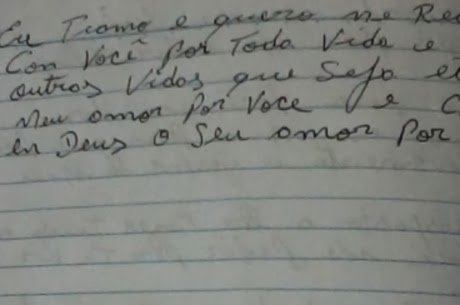 Eu Tiamo e quero me Rec
Con Você por Toda Vida e
outros Vidas que Seja et
Meu amor Por Voce e C
en Deus o Seu amor Por